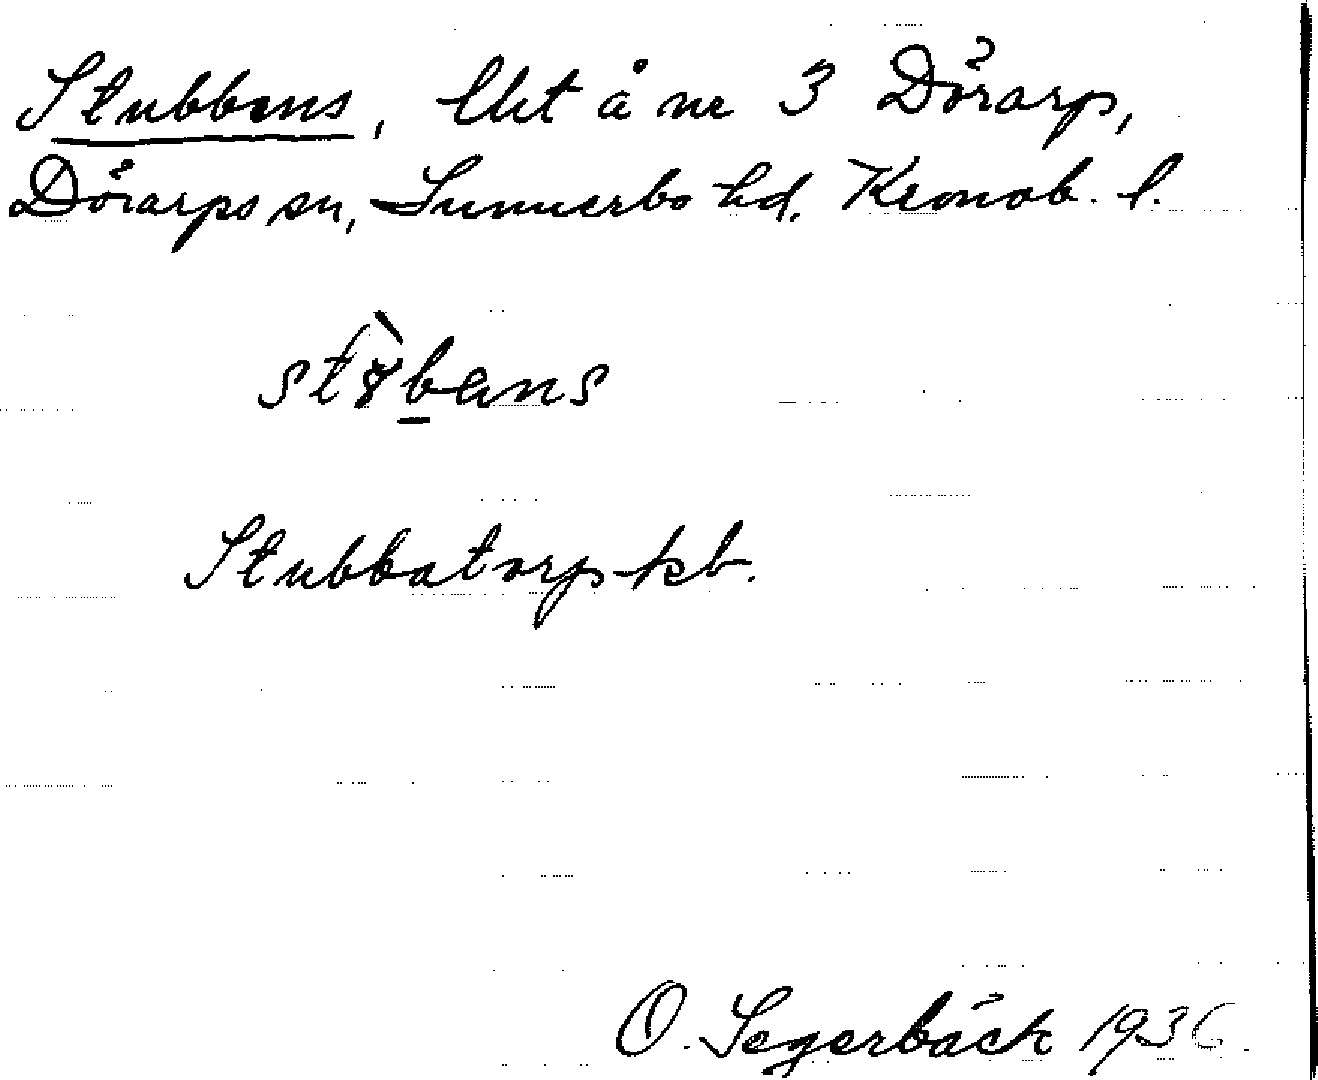 Stubbens, Urt å nr 3 Dörarp,
Dörarps sn, Sunnerbo hd. Kronob. l.
stɤ̀b̲ans
Stubbatorp kb.
O. Segerbäck 1936.